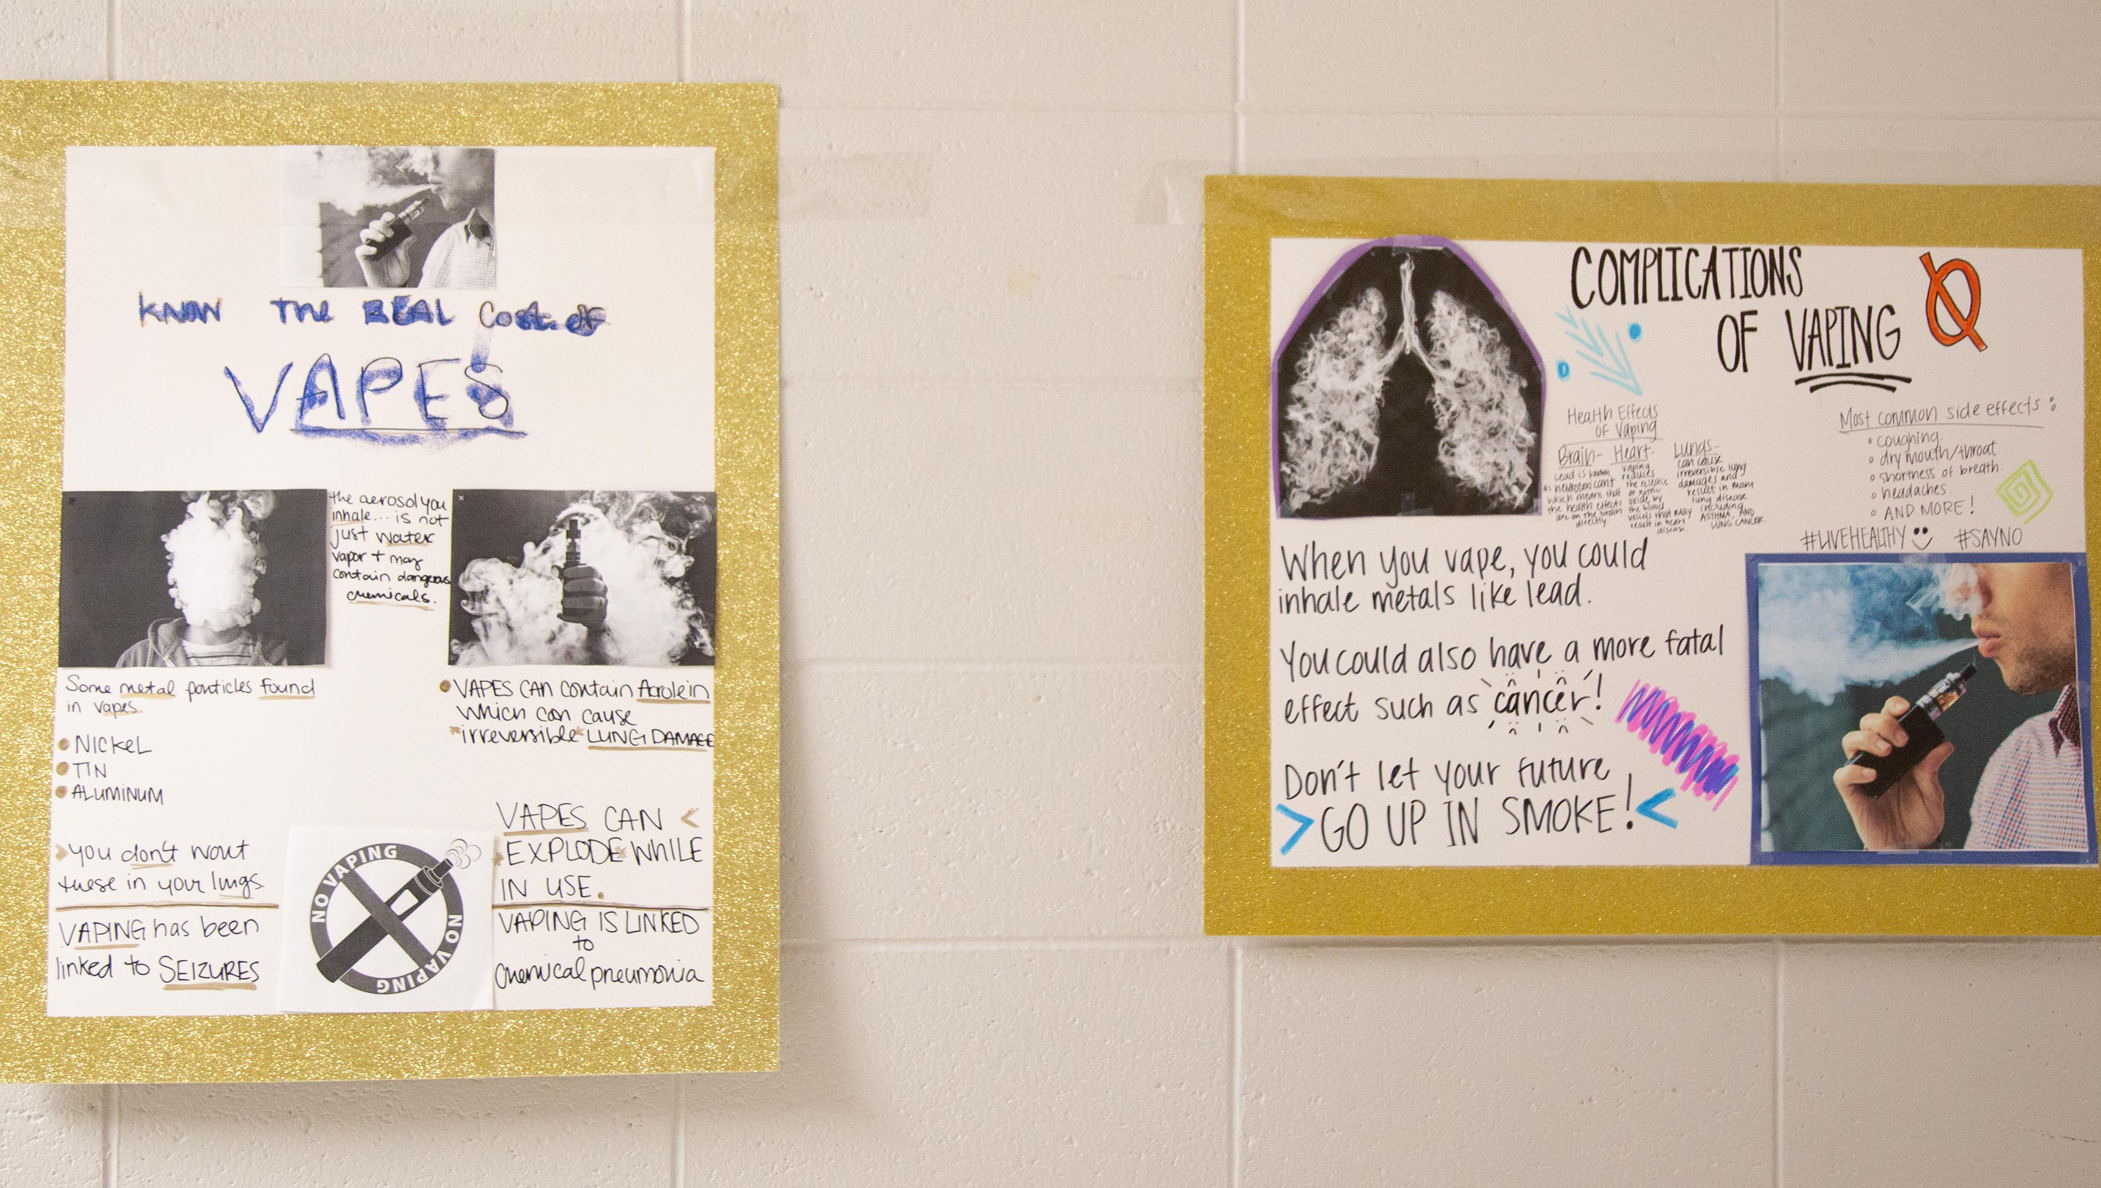 KNOW THE REAL Cost of
VAPES
the aerosol you
inhale... is not
just water
vapor + may
contain dangerous
chemicals.
Some metal particles found
in vapes.
NICKEL
TIN
ALUMINUM
you don't want
these in your lungs.
VAPING has been
linked to SEIZURES
VAPES CAN contain Acrolein
which can cause
"irreversible" LUNG DAMAGE
VAPES CAN
EXPLODE WHILE
IN USE.
VAPING IS LINKED
to
chemical pneumonia
NO VAPING
NO VAPING
COMPLICATIONS
OF VAPING
Health Effects
of Vaping
Brain-
Lead is known
as neurotoxicant
which means that
the health effects
are on the brain
directly.
Heart-
vaping
reduces
the release
of nitric
oxide by
the blood
vessels that may
result in heart
disease.
Lungs-
can cause
irreversible lung
damages and
result in many
lung disease
including
ASTHMA, AND
LUNG CANCER.
Most common side effects:
coughing
dry mouth/throat
shortness of breath.
headaches
AND MORE!
#LIVEHEALTHY #SAYNO
When you vape, you could
inhale metals like lead.
You could also have a more fatal
effect such as cancer!
Don't let your future
GO UP IN SMOKE!